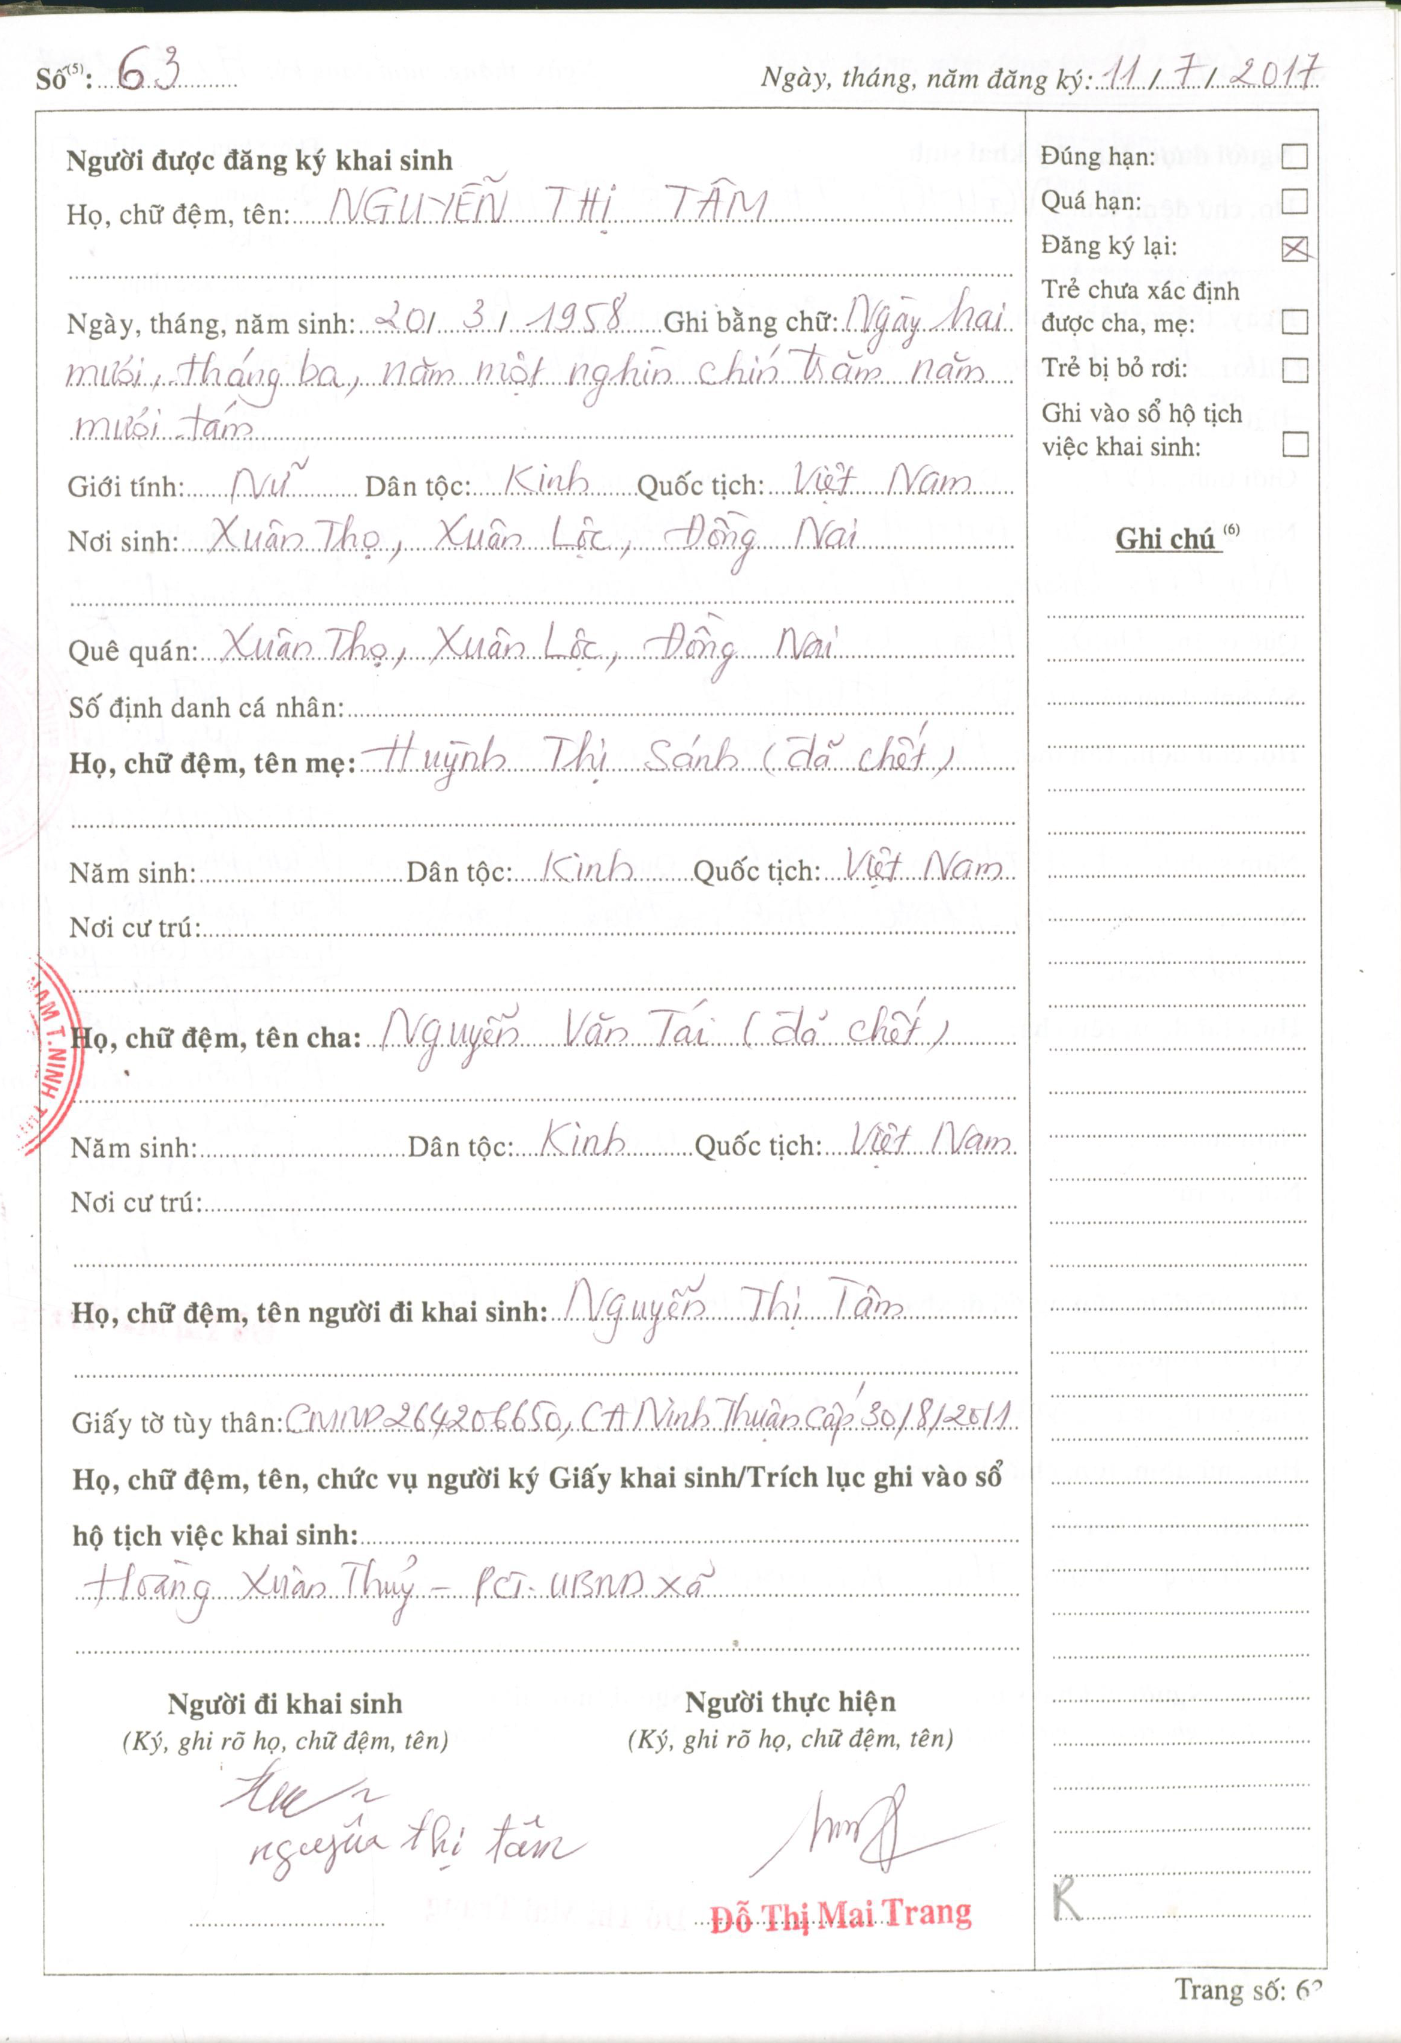 Số(5): 63
Ngày, tháng, năm đăng ký: 11 / 7 / 2017
Người được đăng ký khai sinh
Họ, chữ đệm, tên: NGUYỄN THỊ TÂM
Ngày, tháng, năm sinh: 20 / 3 / 1958 Ghi bằng chữ: Ngày hai
mươi, tháng ba, năm một nghìn chín trăm năm
mươi tám
Giới tính: Nữ Dân tộc: Kinh Quốc tịch: Việt Nam
Nơi sinh: Xuân Thọ, Xuân Lộc, Đồng Nai
Quê quán: Xuân Thọ, Xuân Lộc, Đồng Nai
Số định danh cá nhân:
Họ, chữ đệm, tên mẹ: Huỳnh Thị Sánh (đã chết)
Năm sinh: Dân tộc: Kinh Quốc tịch: Việt Nam
Nơi cư trú:
Họ, chữ đệm, tên cha: Nguyễn Văn Tái (đã chết)
Năm sinh: Dân tộc: Kinh Quốc tịch: Việt Nam
Nơi cư trú:
Họ, chữ đệm, tên người đi khai sinh: Nguyễn Thị Tâm
Giấy tờ tùy thân: CMND 264206650, CA Ninh Thuận cấp 30/8/2011
Họ, chữ đệm, tên, chức vụ người ký Giấy khai sinh/Trích lục ghi vào sổ
hộ tịch việc khai sinh:
Hoàng Xuân Thuỷ - PCT. UBND xã
Người đi khai sinh
(Ký, ghi rõ họ, chữ đệm, tên)
nguyễn thị tâm
Người thực hiện
(Ký, ghi rõ họ, chữ đệm, tên)
Đỗ Thị Mai Trang
Đúng hạn:
Quá hạn:
Đăng ký lại: X
Trẻ chưa xác định
được cha, mẹ:
Trẻ bị bỏ rơi:
Ghi vào sổ hộ tịch
việc khai sinh:
Ghi chú (6)
R
NAM T.NINH
Trang số: 63